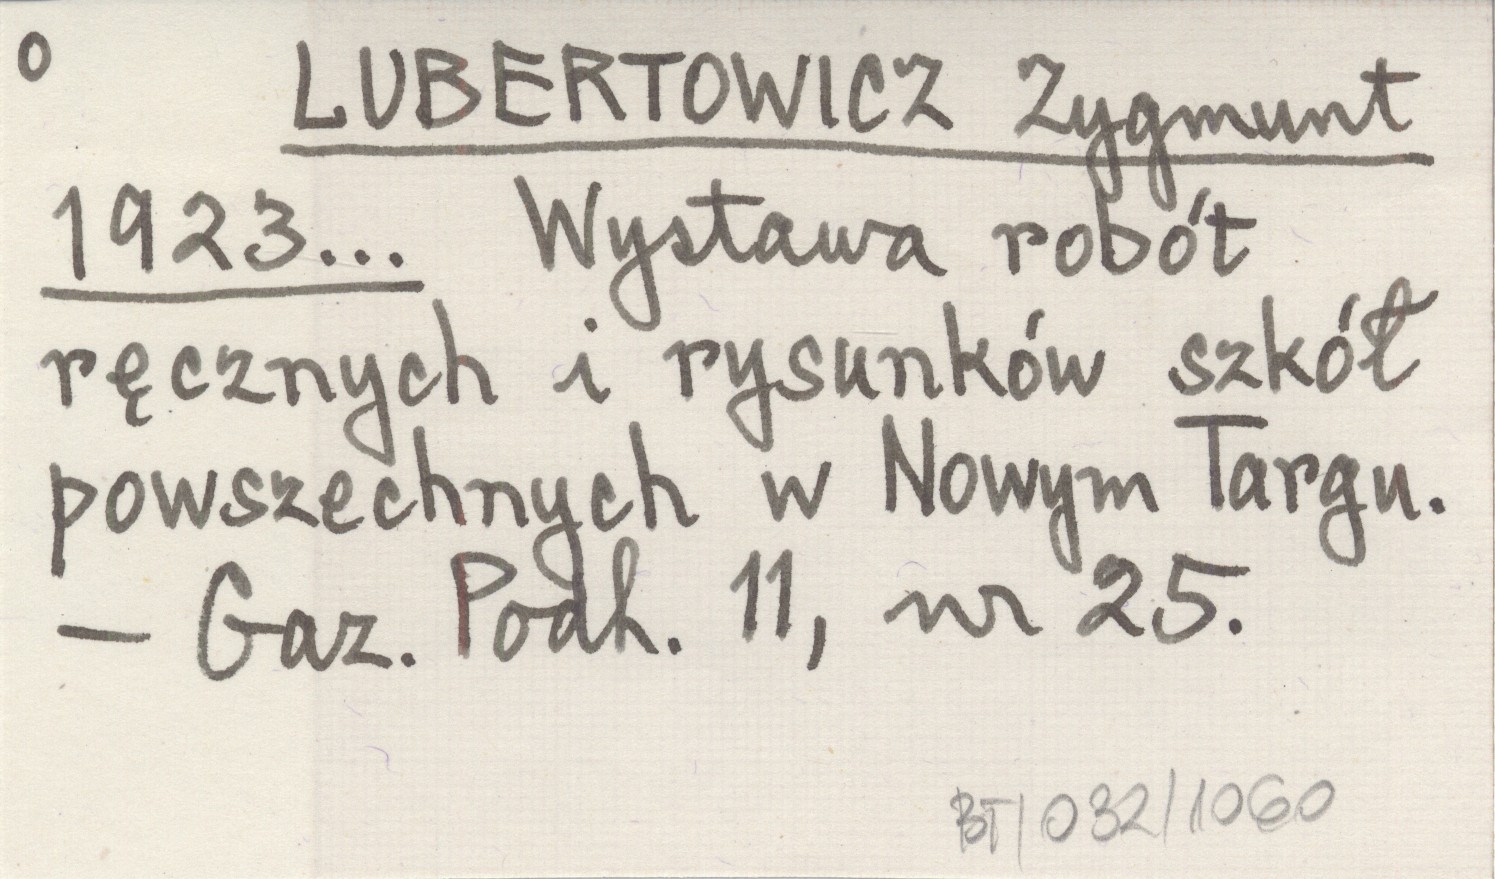 o LUBERTOWICZ Zygmunt
1923... Wystawa robót
ręcznych i rysunków szkół
powszechnych w Nowym Targu.
— Gaz. Podh. 11, nr 25.
BT/032/1060